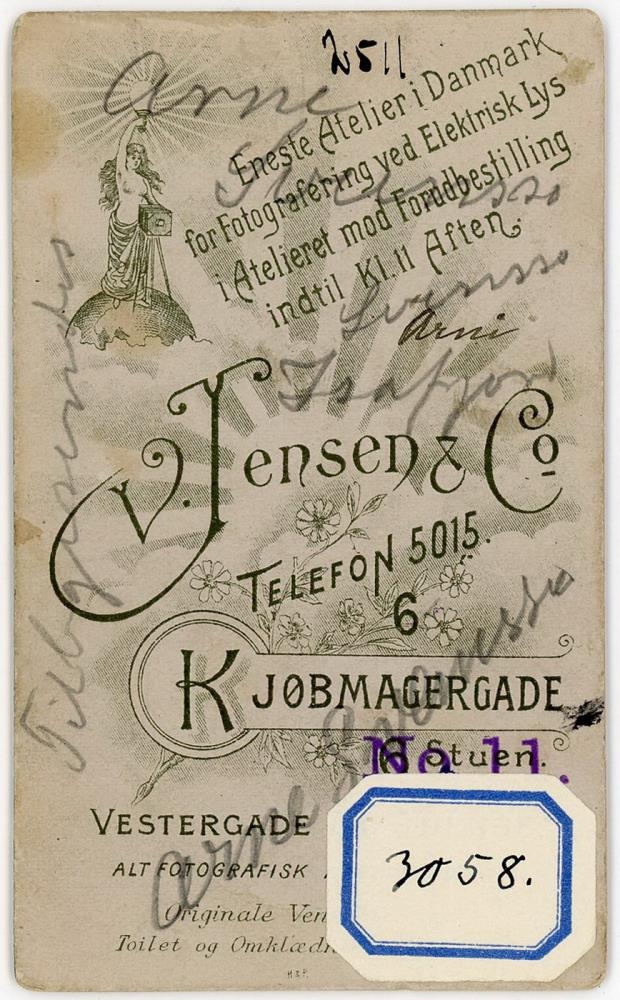 2511
Arne
Eneste Atelier i Danmark
for Fotografering ved Elektrisk Lys
i Atelieret mod Forudbestilling
indtil Kl. 11 Aften.
Arni
Isafjord
V. Jensen & Co
TELEFON 5015.
6
KJØBMAGERGADE
6 Stuen.
No 11.
VESTERGADE
ALT FOTOGRAFISK
Originale
Toilet og
Arne
3058.
H & P.